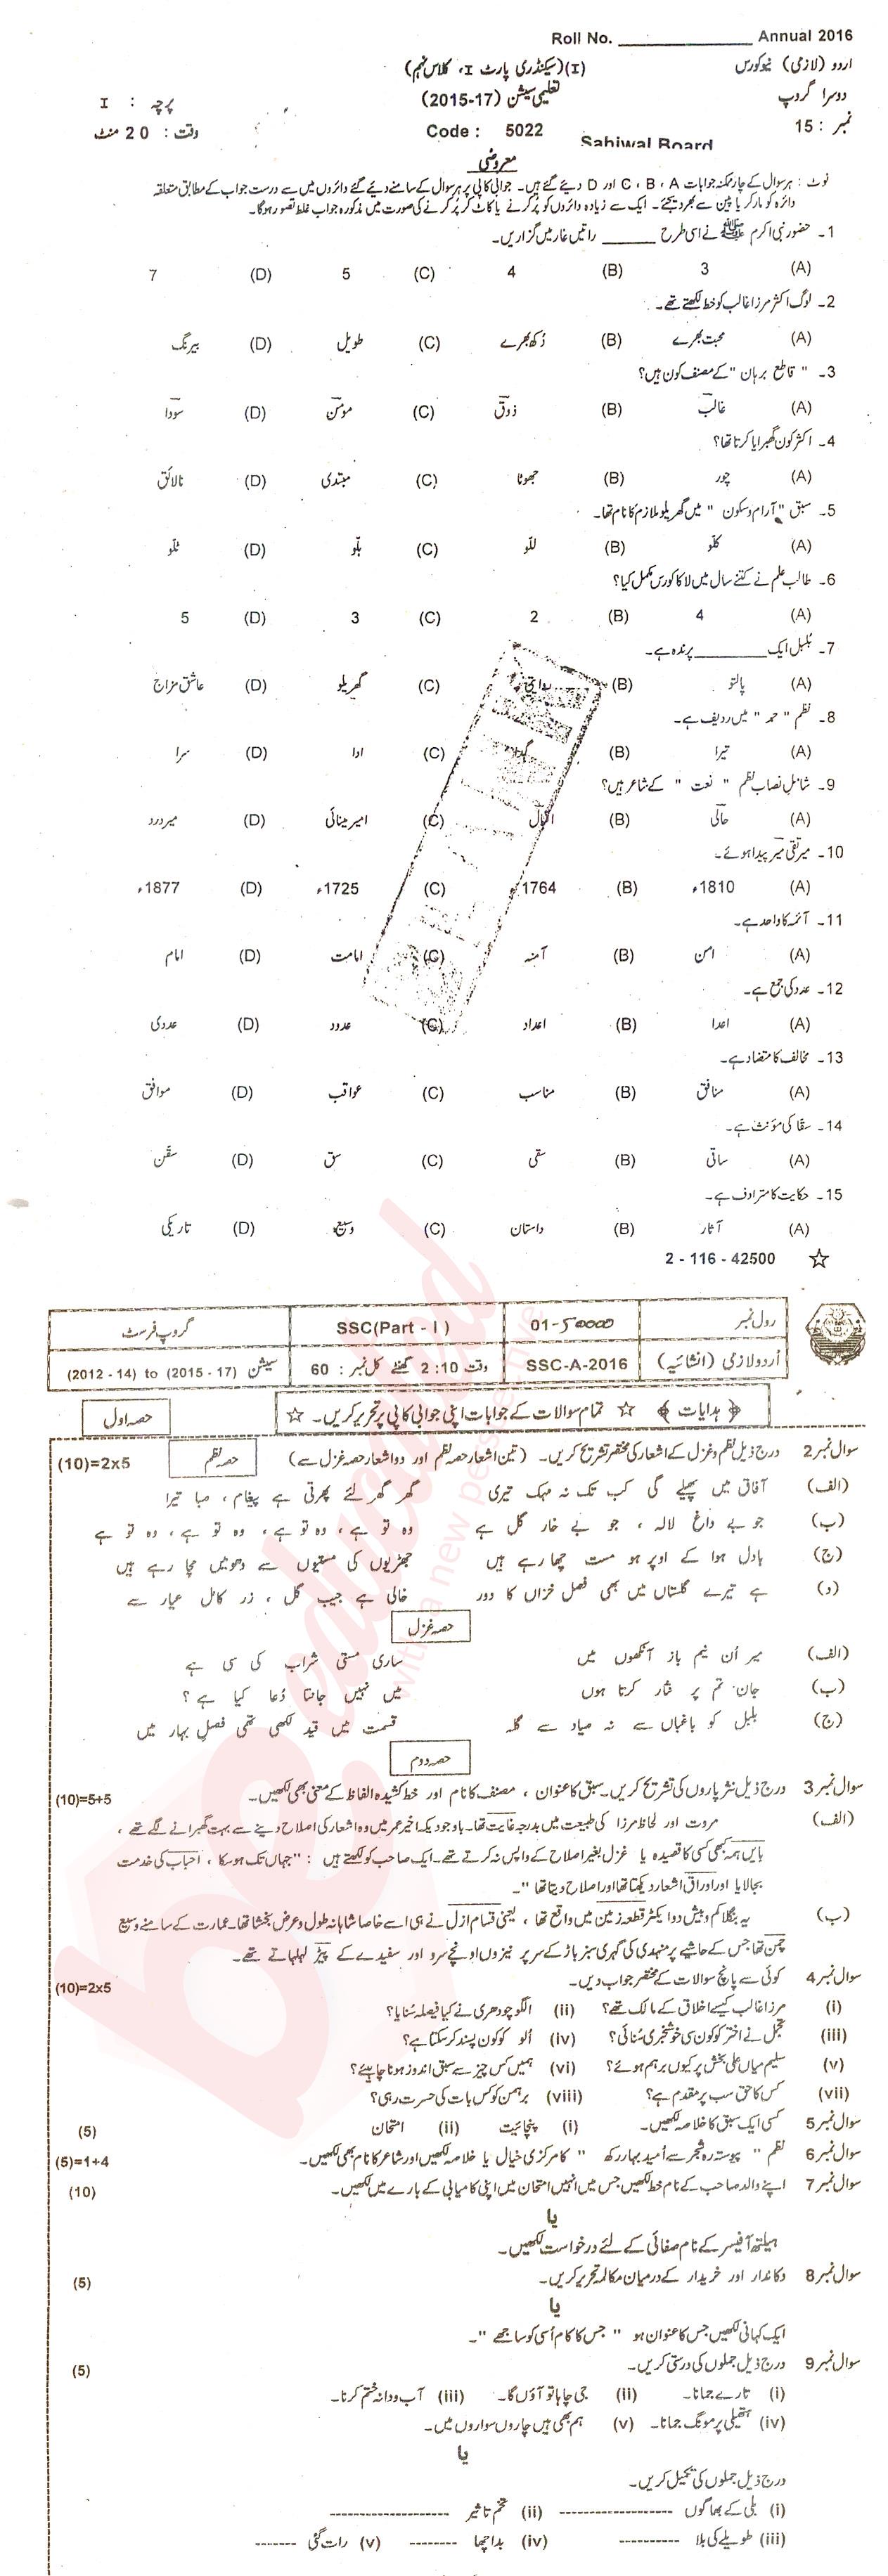 Roll No. ____________ Annual 2016
اردو (لازمی) نیوکورس (I)(سیکنڈری پارٹ I، کلاس نہم)
دوسرا گروپ تعلیمی سیشن (17-2015) پرچہ : I
نمبر : 15 Code : 5022 Sahiwal Board وقت : 20 منٹ
معروضی
نوٹ : ہرسوال کے چار ممکنہ جوابات C ، B ، A اور D دیئے گئے ہیں۔ جوابی کاپی پر ہرسوال کے سامنے دیئے گئے دائروں میں سے درست جواب کے مطابق متعلقہ
دائرہ کو مارکر یا پین سے بھر دیجئے۔ ایک سے زیادہ دائروں کو پُر کرنے یا کاٹ کر پُر کرنے کی صورت میں مذکورہ جواب غلط تصور ہوگا۔
1۔ حضور نبی اکرم ﷺ نے اسی طرح ______ راتیں غار میں گزاریں۔
(A) 3 (B) 4 (C) 5 (D) 7
2۔ لوگ اکثر مرزا غالب کو خط لکھتے تھے۔
(A) محبت بھرے (B) دُکھ بھرے (C) طویل (D) بیرنگ
3۔ " قاطع برہان " کے مصنف کون ہیں؟
(A) غالب (B) ذوق (C) مومن (D) سودا
4۔ اکثر کون گھبرایا کرتا تھا؟
(A) چور (B) جھوٹا (C) مبتدی (D) نالائق
5۔ سبق "آرام و سکون " میں گھریلو ملازم کا نام تھا۔
(A) کلّو (B) للّو (C) بلّو (D) ٹلّو
6۔ طالب علم نے کتنے سال میں لا کا کورس مکمل کیا؟
(A) 4 (B) 2 (C) 3 (D) 5
7۔ بُلبل ایک ________ پرندہ ہے۔
(A) پالتو (B) روایتی (C) گھریلو (D) عاشق مزاج
8۔ نظم " حمد " میں ردیف ہے۔
(A) تیرا (B) گدا (C) ادا (D) سرا
9۔ شاملِ نصاب نظم " نعت " کے شاعر ہیں؟
(A) حالی (B) اقبال (C) امیر مینائی (D) میر درد
10۔ میر تقی میر پیدا ہوئے۔
(A) 1810ء (B) 1764ء (C) 1725ء (D) 1877ء
11۔ آئمہ کا واحد ہے۔
(A) امن (B) آمنہ (C) امامت (D) امام
12۔ عدد کی جمع ہے۔
(A) اعدا (B) اعداد (C) عدود (D) عددی
13۔ مخالف کا متضاد ہے۔
(A) منافق (B) مناسب (C) عواقب (D) موافق
14۔ سقّا کی مؤنث ہے۔
(A) ساقی (B) سقی (C) سق (D) سقّن
15۔ حکایت کا مترادف ہے۔
(A) آثار (B) داستان (C) وسیع (D) تاریکی
☆ 2 - 116 - 42500
رول نمبر 01-50000 SSC(Part - I ) گروپ فرسٹ
اُردو لازمی (انشائیہ) SSC-A-2016 وقت 2:10 گھنٹے کل نمبر : 60 سیشن (2015 - 17) to (2012 - 14)
﴿ ہدایات ﴾ ☆ تمام سوالات کے جوابات اپنی جوابی کاپی پر تحریر کریں۔ ☆ حصہ اول
سوال نمبر 2 درج ذیل نظم و غزل کے اشعار کی مختصر تشریح کریں۔ (تین اشعار حصہ نظم اور دو اشعار حصہ غزل سے) حصہ نظم (10)=2x5
(الف) آفاق میں پھیلے گی کب تک نہ مہک تیری گھر گھر لئے پھرتی ہے پیغام ، صبا تیرا
(ب) جو بے داغ لالہ ، جو بے خار گل ہے وہ تو ہے ، وہ تو ہے ، وہ تو ہے ، وہ تو ہے
(ج) بادل ہوا کے اوپر ہو مست چھا رہے ہیں جھڑیوں کی مستیوں سے دھومیں مچا رہے ہیں
(د) ہے تیرے گلستاں میں بھی فصل خزاں کا دور خالی ہے جیب گل ، زر کامل عیار سے
حصہ غزل
(الف) میر اُن نیم باز آنکھوں میں ساری مستی شراب کی سی ہے
(ب) جان تم پر نثار کرتا ہوں میں نہیں جانتا دُعا کیا ہے ؟
(ج) بلبل کو باغباں سے نہ صیاد سے گلہ قسمت میں قید لکھی تھی فصلِ بہار میں
حصہ دوم
سوال نمبر 3 درج ذیل نثر پاروں کی تشریح کریں۔ سبق کا عنوان ، مصنف کا نام اور خط کشیدہ الفاظ کے معنی بھی لکھیں۔ (10)=5+5
(الف) مروت اور لحاظ مرزا کی طبیعت میں بدرجہ غایت تھا۔ باوجودیکہ اخیر عمر میں وہ اشعار کی اصلاح دینے سے بہت گھبرانے لگے تھے ،
بایں ہمہ کبھی کسی کا قصیدہ یا غزل بغیر اصلاح کے واپس نہ کرتے تھے۔ ایک صاحب کو لکھتے ہیں : "جہاں تک ہو سکا ، احباب کی خدمت
بجا لایا اور اوراق اشعار دیکھتا تھا اور اصلاح دیتا تھا "۔
(ب) یہ بنگلا کم و بیش دو ایکڑ قطعہ زمین میں واقع تھا ، یعنی قسام ازل نے ہی اسے خاصا شاہانہ طول و عرض بخشا تھا۔ عمارت کے سامنے وسیع
چمن تھا جس کے حاشیے پر منہدی کی گہری سبز باڑ کے سر پر نیزوں اونچے سرو اور سفیدے کے پیڑ لہلہاتے تھے۔
سوال نمبر 4 کوئی سے پانچ سوالات کے مختصر جواب دیں۔ (10)=2x5
(i) مرزا غالب کیسے اخلاق کے مالک تھے؟ (ii) الگو چودھری نے کیا فیصلہ سُنایا؟
(iii) تجمل نے اختر کو کون سی خوشخبری سُنائی؟ (iv) اُلو کو کون پسند کر سکتا ہے؟
(v) سلیم میاں علی بخش پر کیوں برہم ہوئے؟ (vi) ہمیں کس چیز سے سبق اندوز ہونا چاہئے؟
(vii) کس کا حق سب پر مقدم ہے؟ (viii) برہمن کو کس بات کی حسرت رہی؟
سوال نمبر 5 کسی ایک سبق کا خلاصہ لکھیں۔ (i) پنچائیت (ii) امتحان (5)
سوال نمبر 6 نظم " پیوستہ رہ شجر سے اُمید بہار رکھ " کا مرکزی خیال یا خلاصہ لکھیں اور شاعر کا نام بھی لکھیں۔ (5)=1+4
سوال نمبر 7 اپنے والد صاحب کے نام خط لکھیں جس میں انہیں امتحان میں اپنی کامیابی کے بارے میں لکھیں۔ (10)
یا
ہیلتھ آفیسر کے نام صفائی کے لئے درخواست لکھیں۔
سوال نمبر 8 دکاندار اور خریدار کے درمیان مکالمہ تحریر کریں۔ (5)
یا
ایک کہانی لکھیں جس کا عنوان ہو " جس کا کام اُسی کو ساجھے "۔
سوال نمبر 9 درج ذیل جملوں کی درستی کریں۔ (5)
(i) تارے جمانا۔ (ii) جی چاہا تو آؤں گا۔ (iii) آب و دانہ ختم کرنا۔
(iv) ہتھیلی پر مونگ جمانا۔ (v) ہم بھی ہیں چاروں سواروں میں۔
یا
درج ذیل جملوں کی تکمیل کریں۔
(i) بلی کے بھاگوں -------------------- (ii) تخم تاثیر --------------------
(iii) طویلے کی بلا ---------- (iv) بد اچھا -------- (v) رات گئی -------